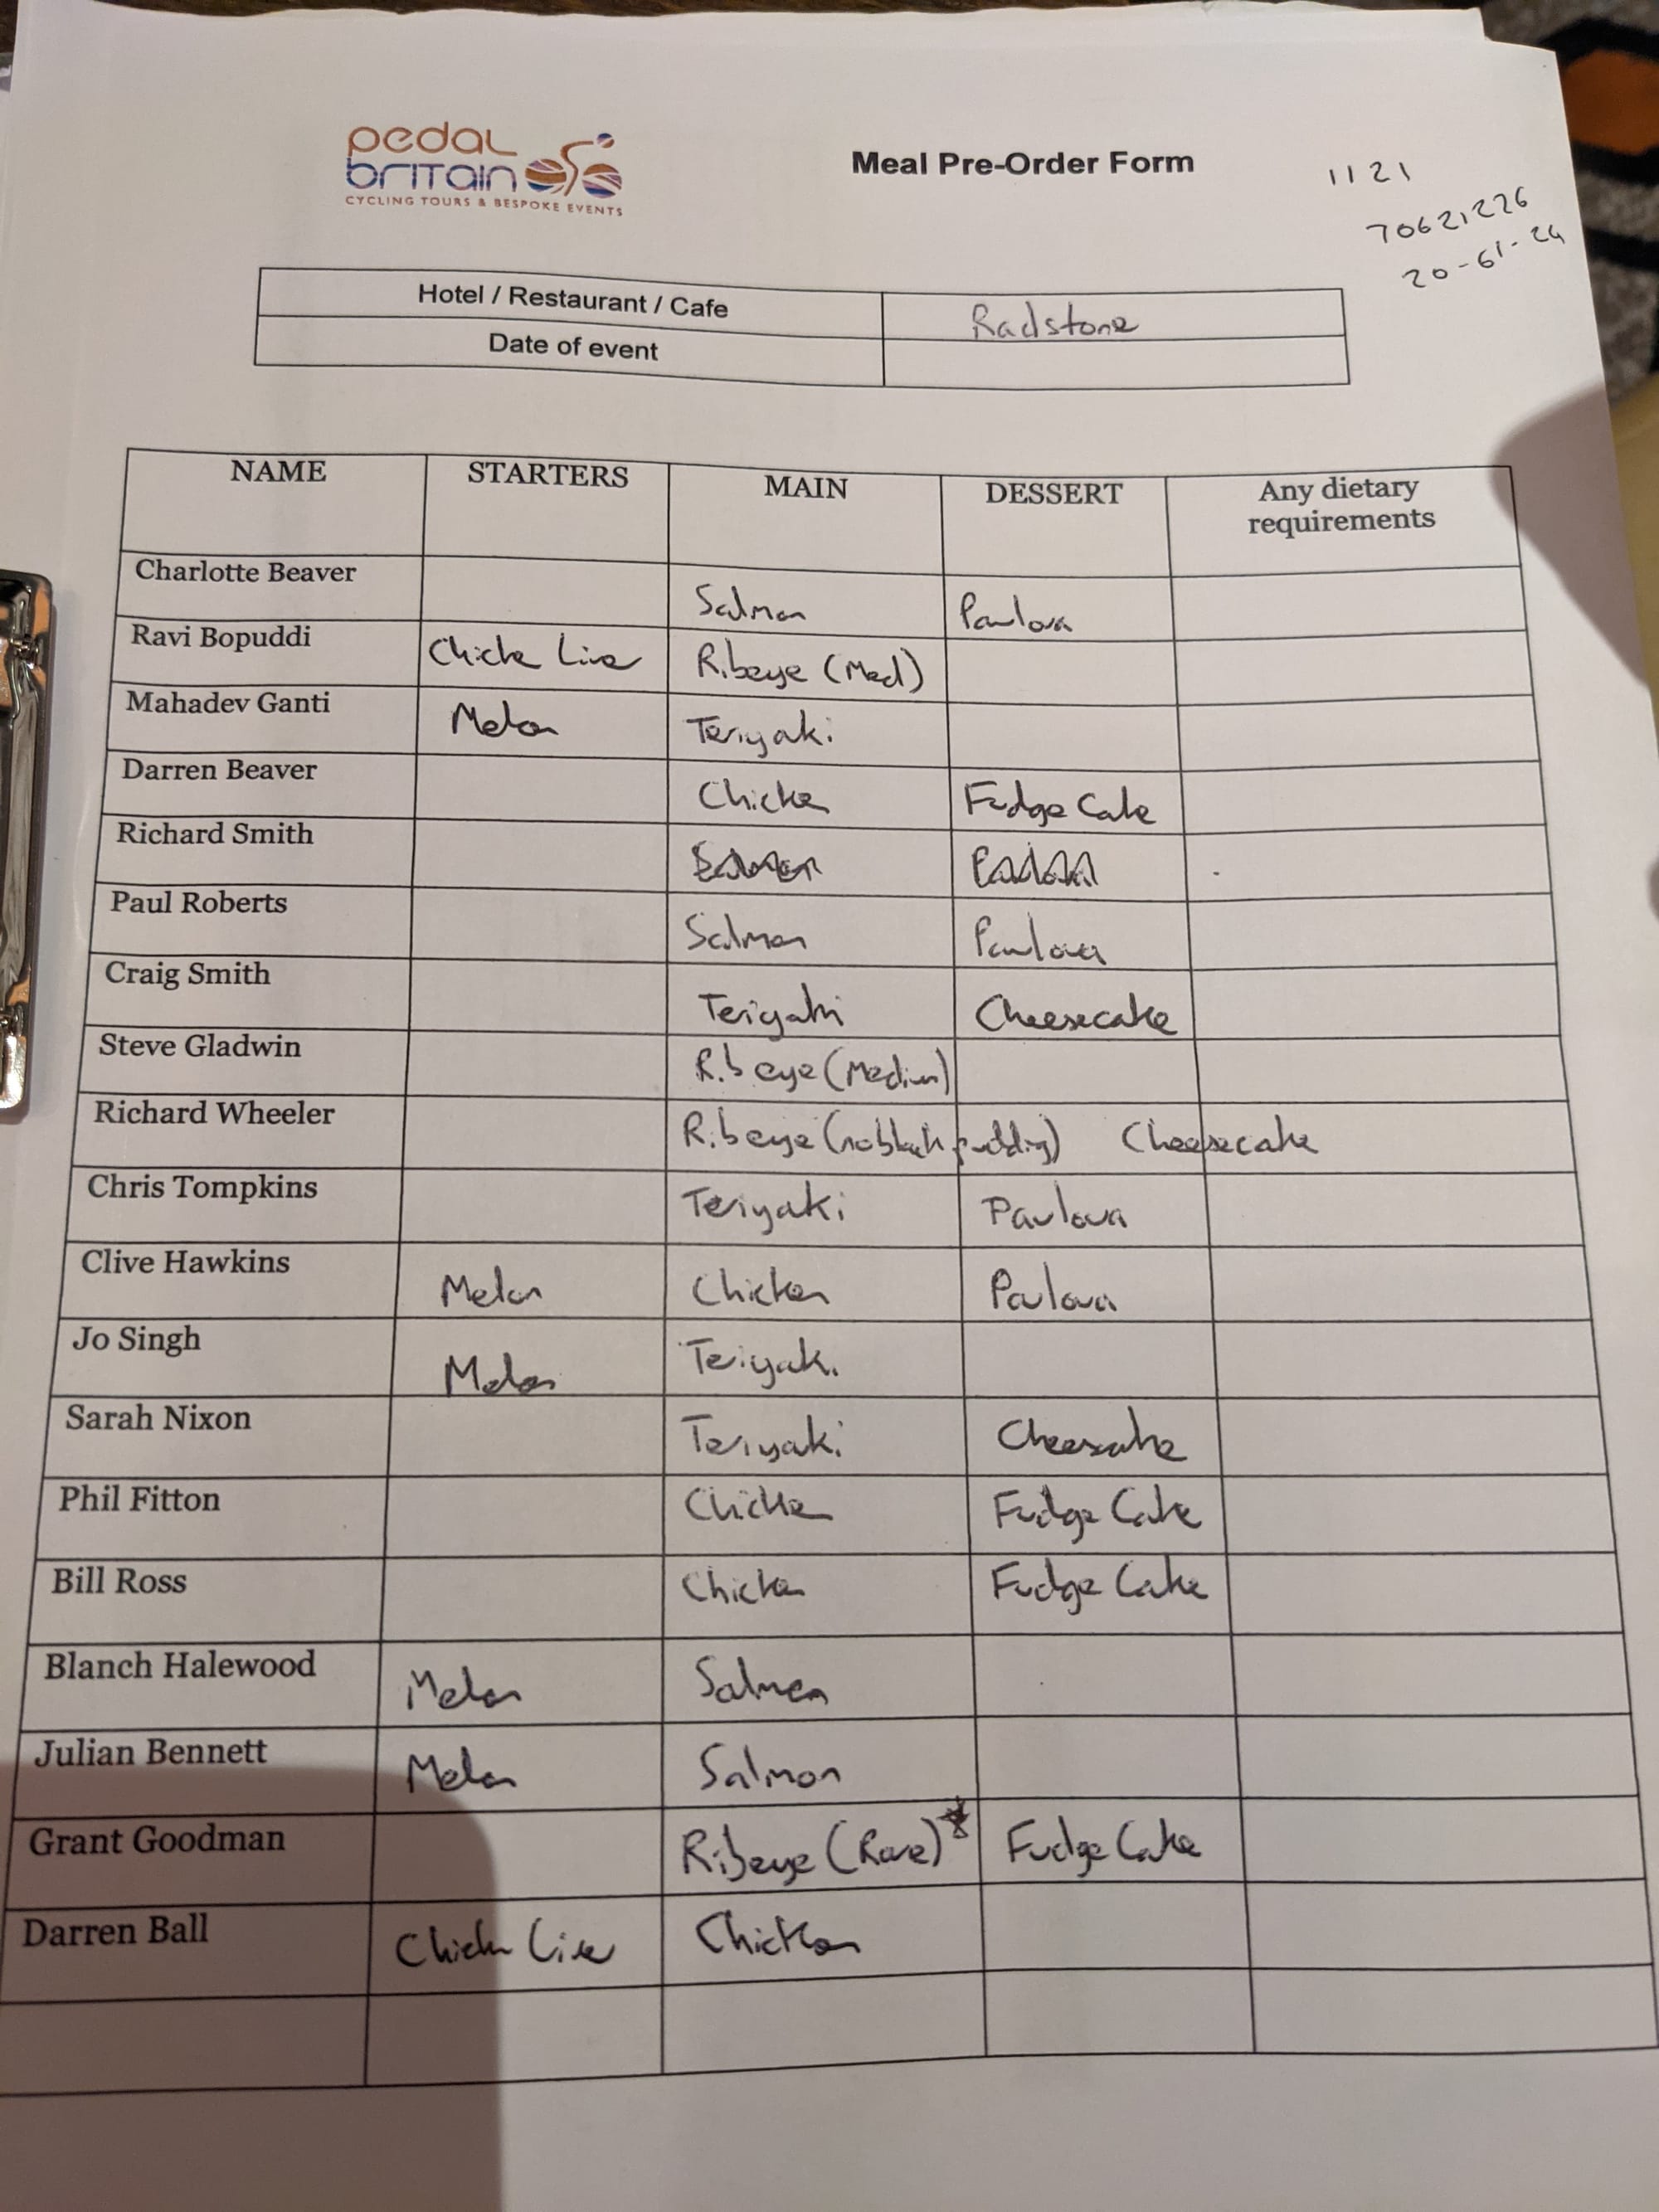 pedal
britain
CYCLING TOURS & BESPOKE EVENTS
Meal Pre-Order Form
1121
70621226
20-61-24
Hotel / Restaurant / Cafe Radstone
Date of event
NAME STARTERS MAIN DESSERT Any dietary
requirements
Charlotte Beaver Salmon Pavlova
Ravi Bopuddi Chicken Liver Ribeye (Med)
Mahadev Ganti Melon Teriyaki
Darren Beaver Chicken Fudge Cake
Richard Smith
Paul Roberts Salmon Pavlova
Craig Smith Teriyaki Cheesecake
Steve Gladwin Ribeye (Medium)
Richard Wheeler Ribeye (no black pudding) Cheesecake
Chris Tompkins Teriyaki Pavlova
Clive Hawkins Melon Chicken Pavlova
Jo Singh Melon Teriyaki
Sarah Nixon Teriyaki Cheesecake
Phil Fitton Chicken Fudge Cake
Bill Ross Chicken Fudge Cake
Blanch Halewood Melon Salmon
Julian Bennett Melon Salmon
Grant Goodman Ribeye (Rare)* Fudge Cake
Darren Ball Chicken Liver Chicken